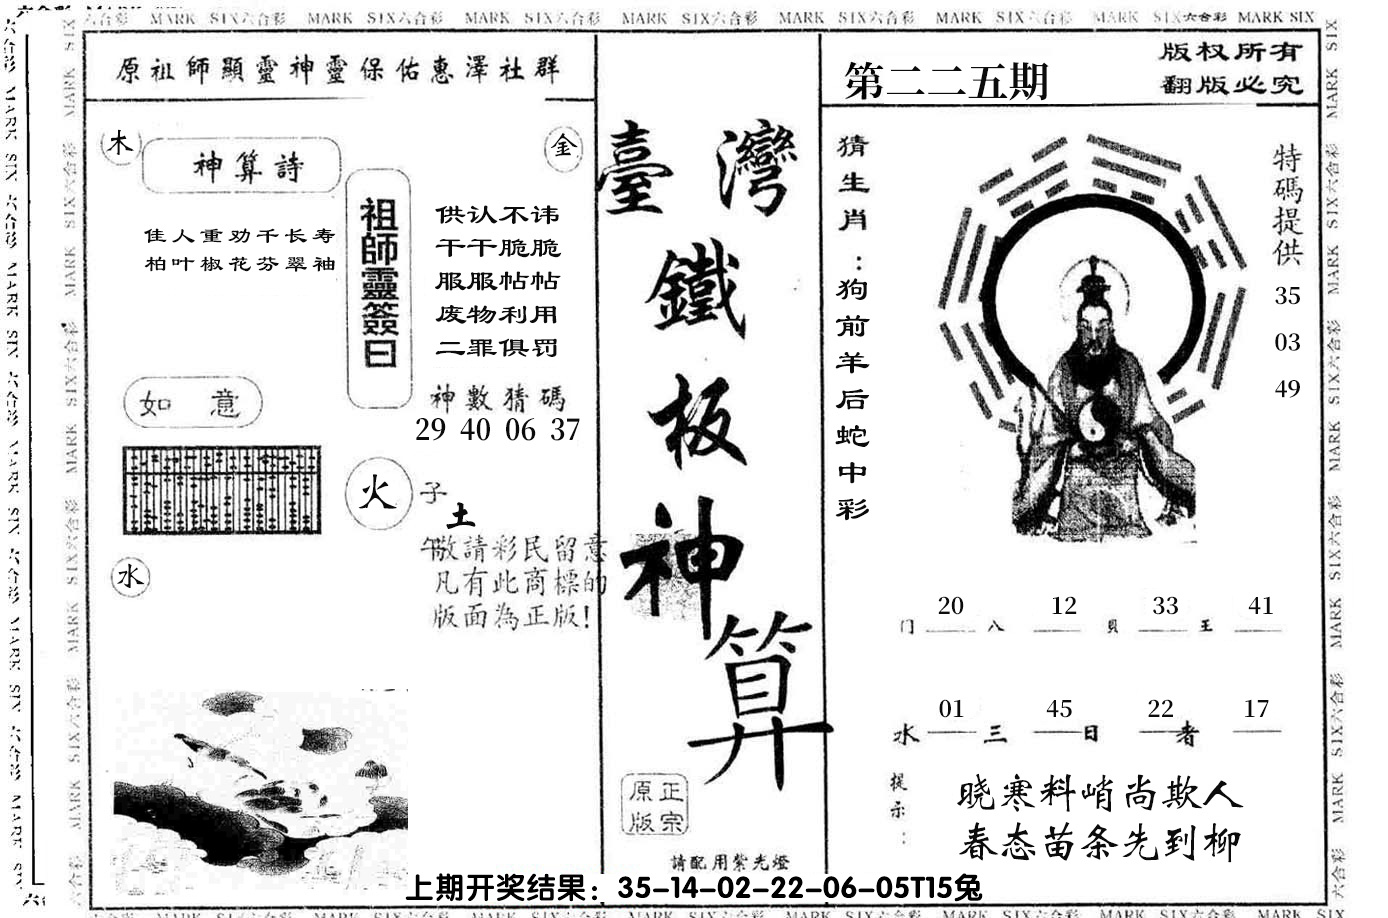 六合彩 MARK SIX六合彩 MARK SIX六合彩 MARK SIX六合彩 MARK SIX六合彩 MARK SIX六合彩 MARK SIX六合彩 MARK SIX六合彩 MARK SIX
原祖師顯靈神靈保佑惠澤社群
木
神算詩
金
佳人重劝千长寿
柏叶椒花芬翠袖
祖師靈簽曰
供认不讳
干干脆脆
服服帖帖
废物利用
二罪俱罚
神數猜碼
29 40 06 37
如意
火
子
土
午
敬請彩民留意
凡有此商標的
版面為正版!
水
臺灣
鐵
板
神
算
正宗
原版
請配用紫光燈
第二二五期
版权所有
翻版必究
猜生肖:狗前羊后蛇中彩
特碼提供
35
03
49
20 12 33 41
门 八 貝 王
01 45 22 17
水 三 日 者
提示:
晓寒料峭尚欺人
春态苗条先到柳
上期开奖结果：35-14-02-22-06-05T15兔